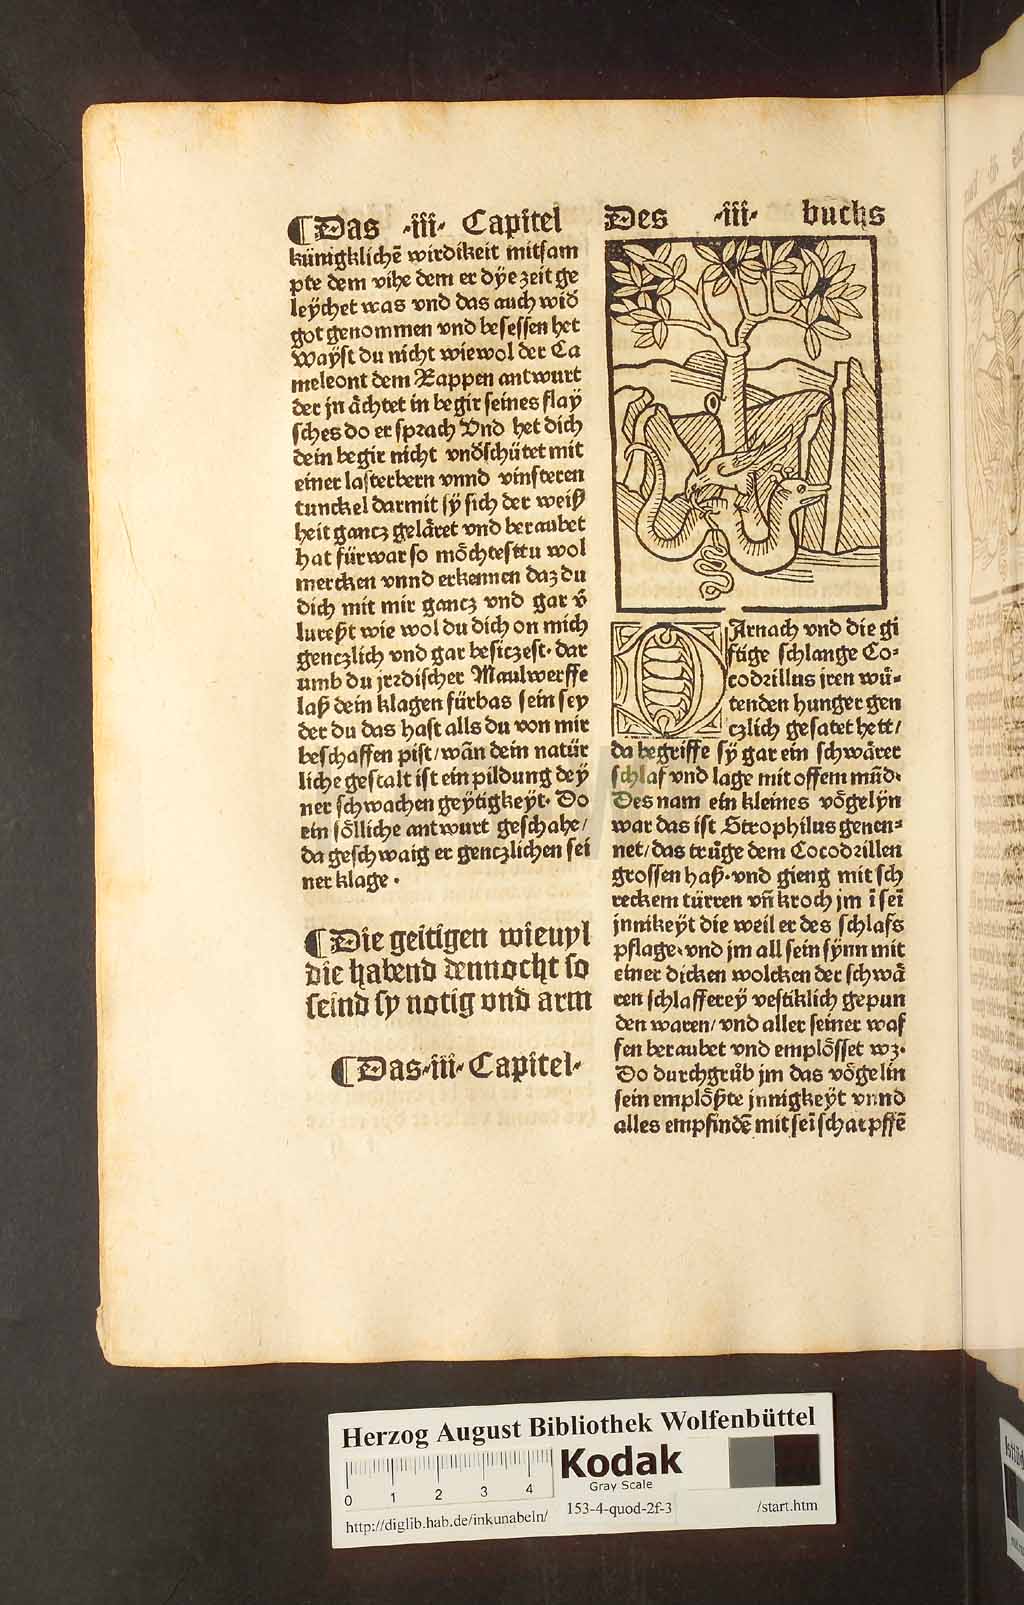 ¶Das ·iii· Capitel
künigklichē wirdikeit mitsam
pte dem vihe dem er dÿe zeit ge
leÿchet was vnd das auch wið
got genommen vnd besessen het
Wayst du nicht wiewol der Ca
meleont dem Rappen antwurt
der jn ächtet in begir seines flaÿ
sches do er sprach Vnd het dich
dein begir nicht vnðschütet mit
einer lasterbern vnnd vinsteren
tunckel darmit sÿ sich der weiß
heit gancz geläret vnd beraubet
hat fürwar so möchtesttu wol
mercken vnnd erkennen daz du
dich mit mir gancz vnd gar v̄
lureßt wie wol du dich on mich
genczlich vnd gar besiczest· dar
umb du jrrdischer Maulwerffe
laß dein klagen fürbas sein sey
der du das hast alls du von mir
beschaffen pist/ wān dein natür
liche gestalt ist ein pildung deÿ
ner schwachen geÿtigkeÿt· Do
ein sölliche antwurt geschahe/
da geschwaig er genczlichen sei
ner klage ·
¶Die geitigen wieuyl
die habend dennocht so
seind sy notig vnd arm
¶Das·iii·Capitel·
Des ·iii· buchs
DArnach vnd die gi
ftige schlange Co⸗
codrillus jren wü⸗
tenden hunger gen
czlich gesatet hett/
da begriffe sÿ gar ein schwärer
schlaf vnd lage mit offem mūd·
Des nam ein kleines vögelÿn
war das ist Strophilus genen⸗
net/ das trůge dem Cocodrillen
grossen haß·vnd gieng mit sch
reckem türren vn̄ kroch jm ī seī
jnnikeÿt die weil er des schlafs
pflage·vnd jm all sein sÿnn mit
einer dicken wolcken der schwä
ren schlaffereÿ vestiklich gepun
den waren/ vnd aller seiner waf
fen beraubet vnd emplösset wz·
Do durchgrůb jm das vögelin
sein emplößte jnnigkeÿt vnnd
alles empfindē mit seī scharpffē
Herzog August Bibliothek Wolfenbüttel
Kodak
Gray Scale
0 1 2 3 4
http://diglib.hab.de/inkunabeln/ 153-4-quod-2f-3 /start.htm